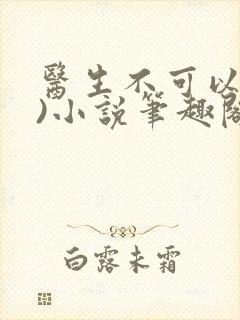 醫生不可以
)小說筆趣閣
白露未霜